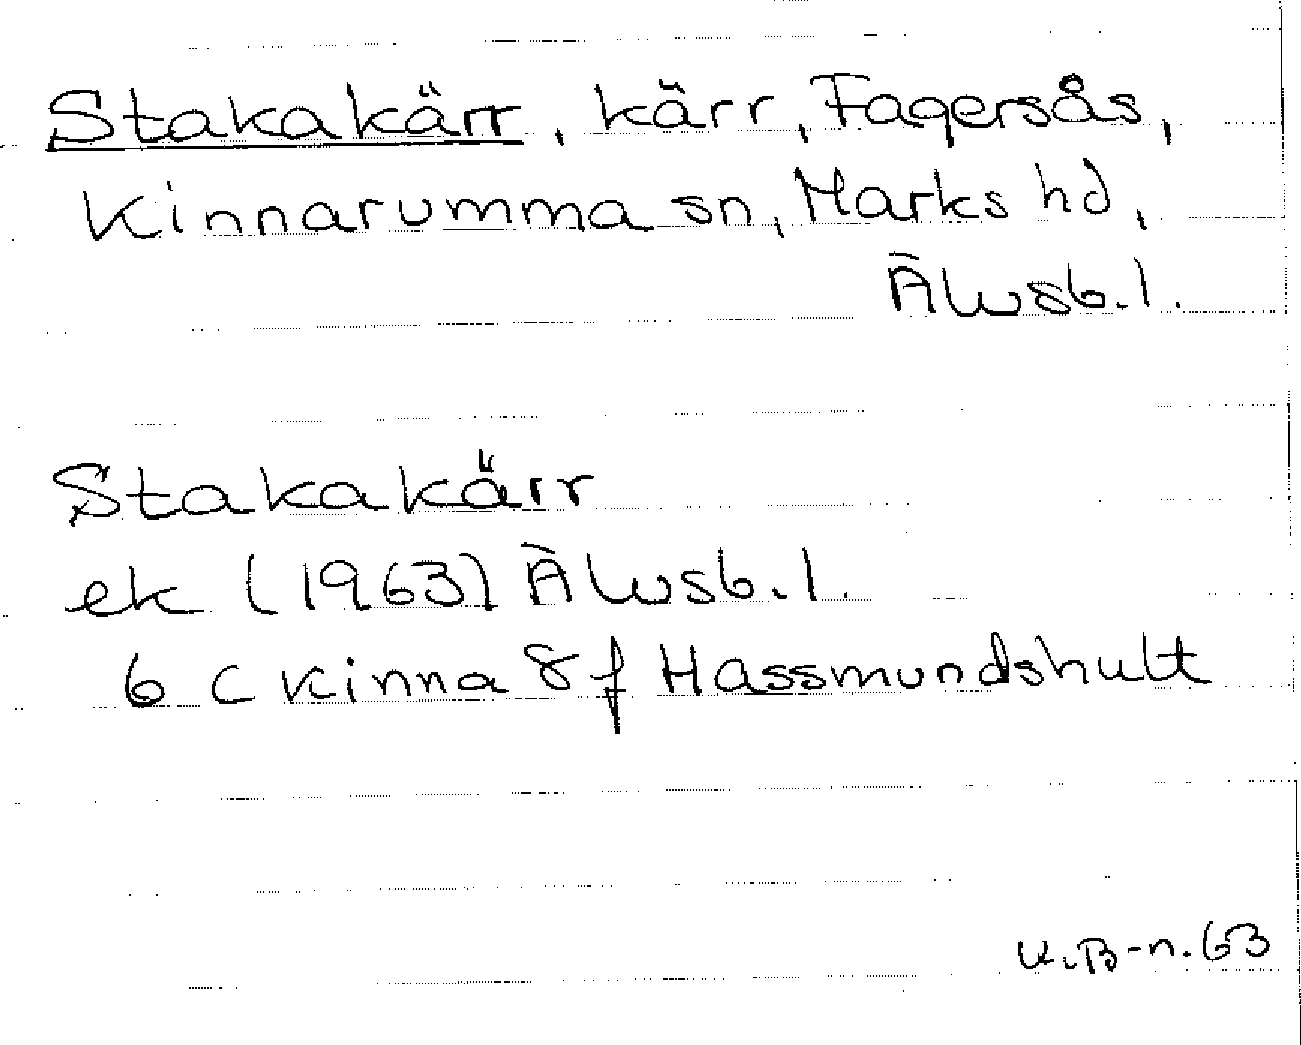 Stakakärr, kärr, Fagersås,
Kinnarumma sn, Marks hd,
Älvsb. l.
Stakakärr
ek (1963) Älvsb. l.
6 C Kinna 8 f Hassmundshult
K. B-n. 63